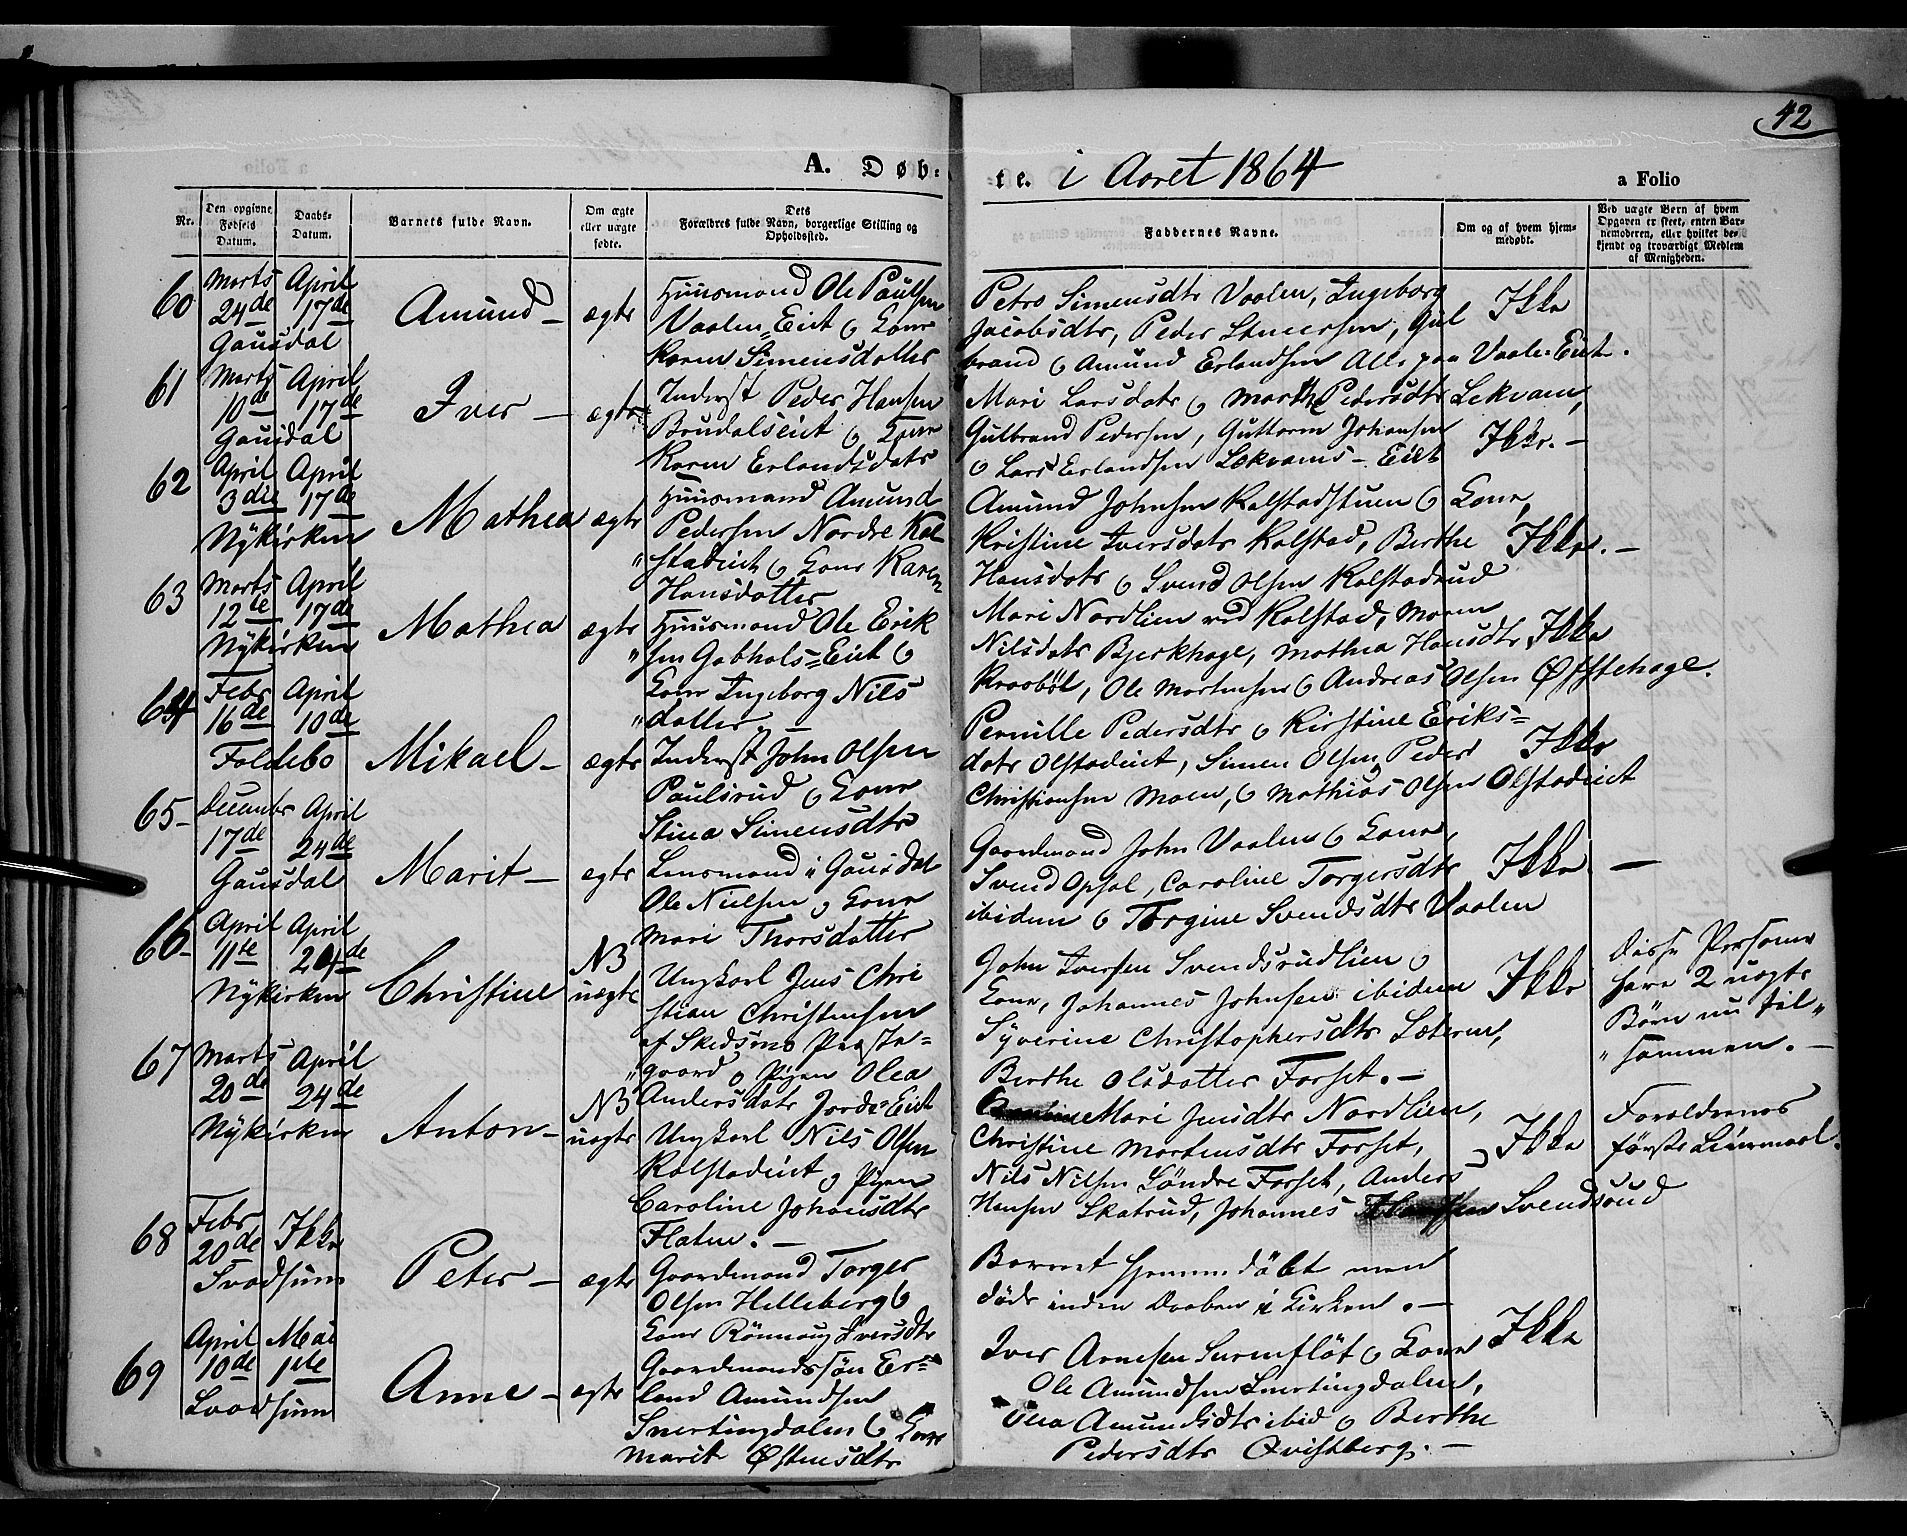 42
A. Døb-
te. i Aaret 1864
a Folio
Nr.
Den opgivne Fødsels Datum.
Daabs-Datum.
Barnets fulde Navn.
Om ægte eller uægte fødte.
Dets Forældres fulde Navn, borgerlige Stilling og Opholdssted.
Faddernes Navne.
Om og af hvem hjemmedøbt.
Ved uægte Børn af hvem Opgaven er skeet, enten Barnemoderen, eller hvilket bekjendt og troværdigt Medlem af Menigheden.
60
Marts 24de
April 17de
Gausdal
Amund –
ægte
Huusmand Ole Paulsen
Vaalen-Eiet o Kone
Karen Simensdatter
Petro Simensdtr Vaalen, Ingeborg
Jacobsdtr, Peder Steensen, Gul
brand o Amund Erlandsen Alle paa Vaale-Eiet.
Ikke
61
Marts 10de
April 17de
Gausdal
Iver –
ægte
Inderst Peder Hansen
Brudalseiet o Kone
Karen Erlandsdatr
Mari Larsdatr o Marthe Pedersdtr Lekvam,
Gulbrand Pedersen, Guttorm Johansen
o Lars Erlandsen Lekvams-Eiet
Ikke. –
62
April 3die
April 17de
Nykirken
Mathea
ægte
Huusmand Amund
Pedersen Nordre Kal-
"stadeiet o Kone Karen
Hansdatter
Amund Johnsen Kalstadstuen o Kone,
Kristine Iversdatr Kalstad, Berthe
Hansdatr o Svend Olsen Kalstadrud
Ikke. –
63
Marts 12te
April 17de
Nykirken
Mathea
ægte
Huusmand Ole Erik
"sen Gabhols-Eiet o
Kone Ingeborg Nils
"datter –
Mari Nordlien ved Kalstad, Maren
Nilsdatr Bjerkhage, Mathea Hansdtr
Kraabøl, Ole Martinsen o Andreas Olsen Øfstehage.
Ikke
64
Febr 16de
April 10de
Foldebo
Mikael –
ægte
Inderst John Olsen
Paulsrud o Kone
Stina Simensdtr
Pernille Pedersdtr o Kirstine Eriks-
datr Olstadeiet, Simen Olsen, Peder
Christiansen Moen, o Mathias Olsen Olstadeiet
Ikke
65 –
December 17de
April 24de
Gausdal
Marit –
ægte
Lensmand i Gausdal
Ole Nielsen o Kone
Mari Thorsdatter
Gaardmand John Vaalen o Kone,
Svend Opsal, Caroline Torgersdtr
ibidem o Torgine Svendsdtr Vaalen
Ikke –
66 –
April 11te
April 24de
Nykirken
Christine
NB
uægte
Ungkarl Jens Chri
stian Christensen
af Skedsmo Præste-
"gaard o Pigen Olea
Andersdatr Jords-Eiet
John Iversen Svendsrudlien o
Kone, Johannes Johnsen ibidem
Syverine Christophersdtr Sæteren,
Berthe Olsdatter Forset. –
Ikke
Disse Personer
have 2 uægte
Børn nu til"
"sammen. –
67
Marts 20de
April 24de
Nykirken
Anton –
NB
uægte
Ungkarl Nils Olsen
Kalstadeiet o Pigen
Caroline Johansdtr
Flaten. –
Mari Jensdtr Nordlien,
Christine Mortensdtr Forset,
Nils Nilsen Søndre Forset, Anders
Hansen Skatrud, Johannes Svendsrud
Ikke
Forældrenes
første Leiermaal.
68
Febr 20de
Ikke
Svadsum
Peter –
ægte
Gaardmand Torger
Olsen Helleberg o
Kone Rønnaug Iversdtr
Barnet hjemmedøbt men
døde inden Daaben i Kirken. –
69
April 10de
Mai 1ste
Svadsum
Anne –
ægte
Gaardmandssøn Er-
land Amundsen
Snertingdalen o Kone
Marit Østensdtr
Iver Arnesen Surenfløt o Kone
Ole Amundsen Snertingdalen,
Amundsdtr ibid o Berthe
Pedersdtr Qvistberg. –
Ikke